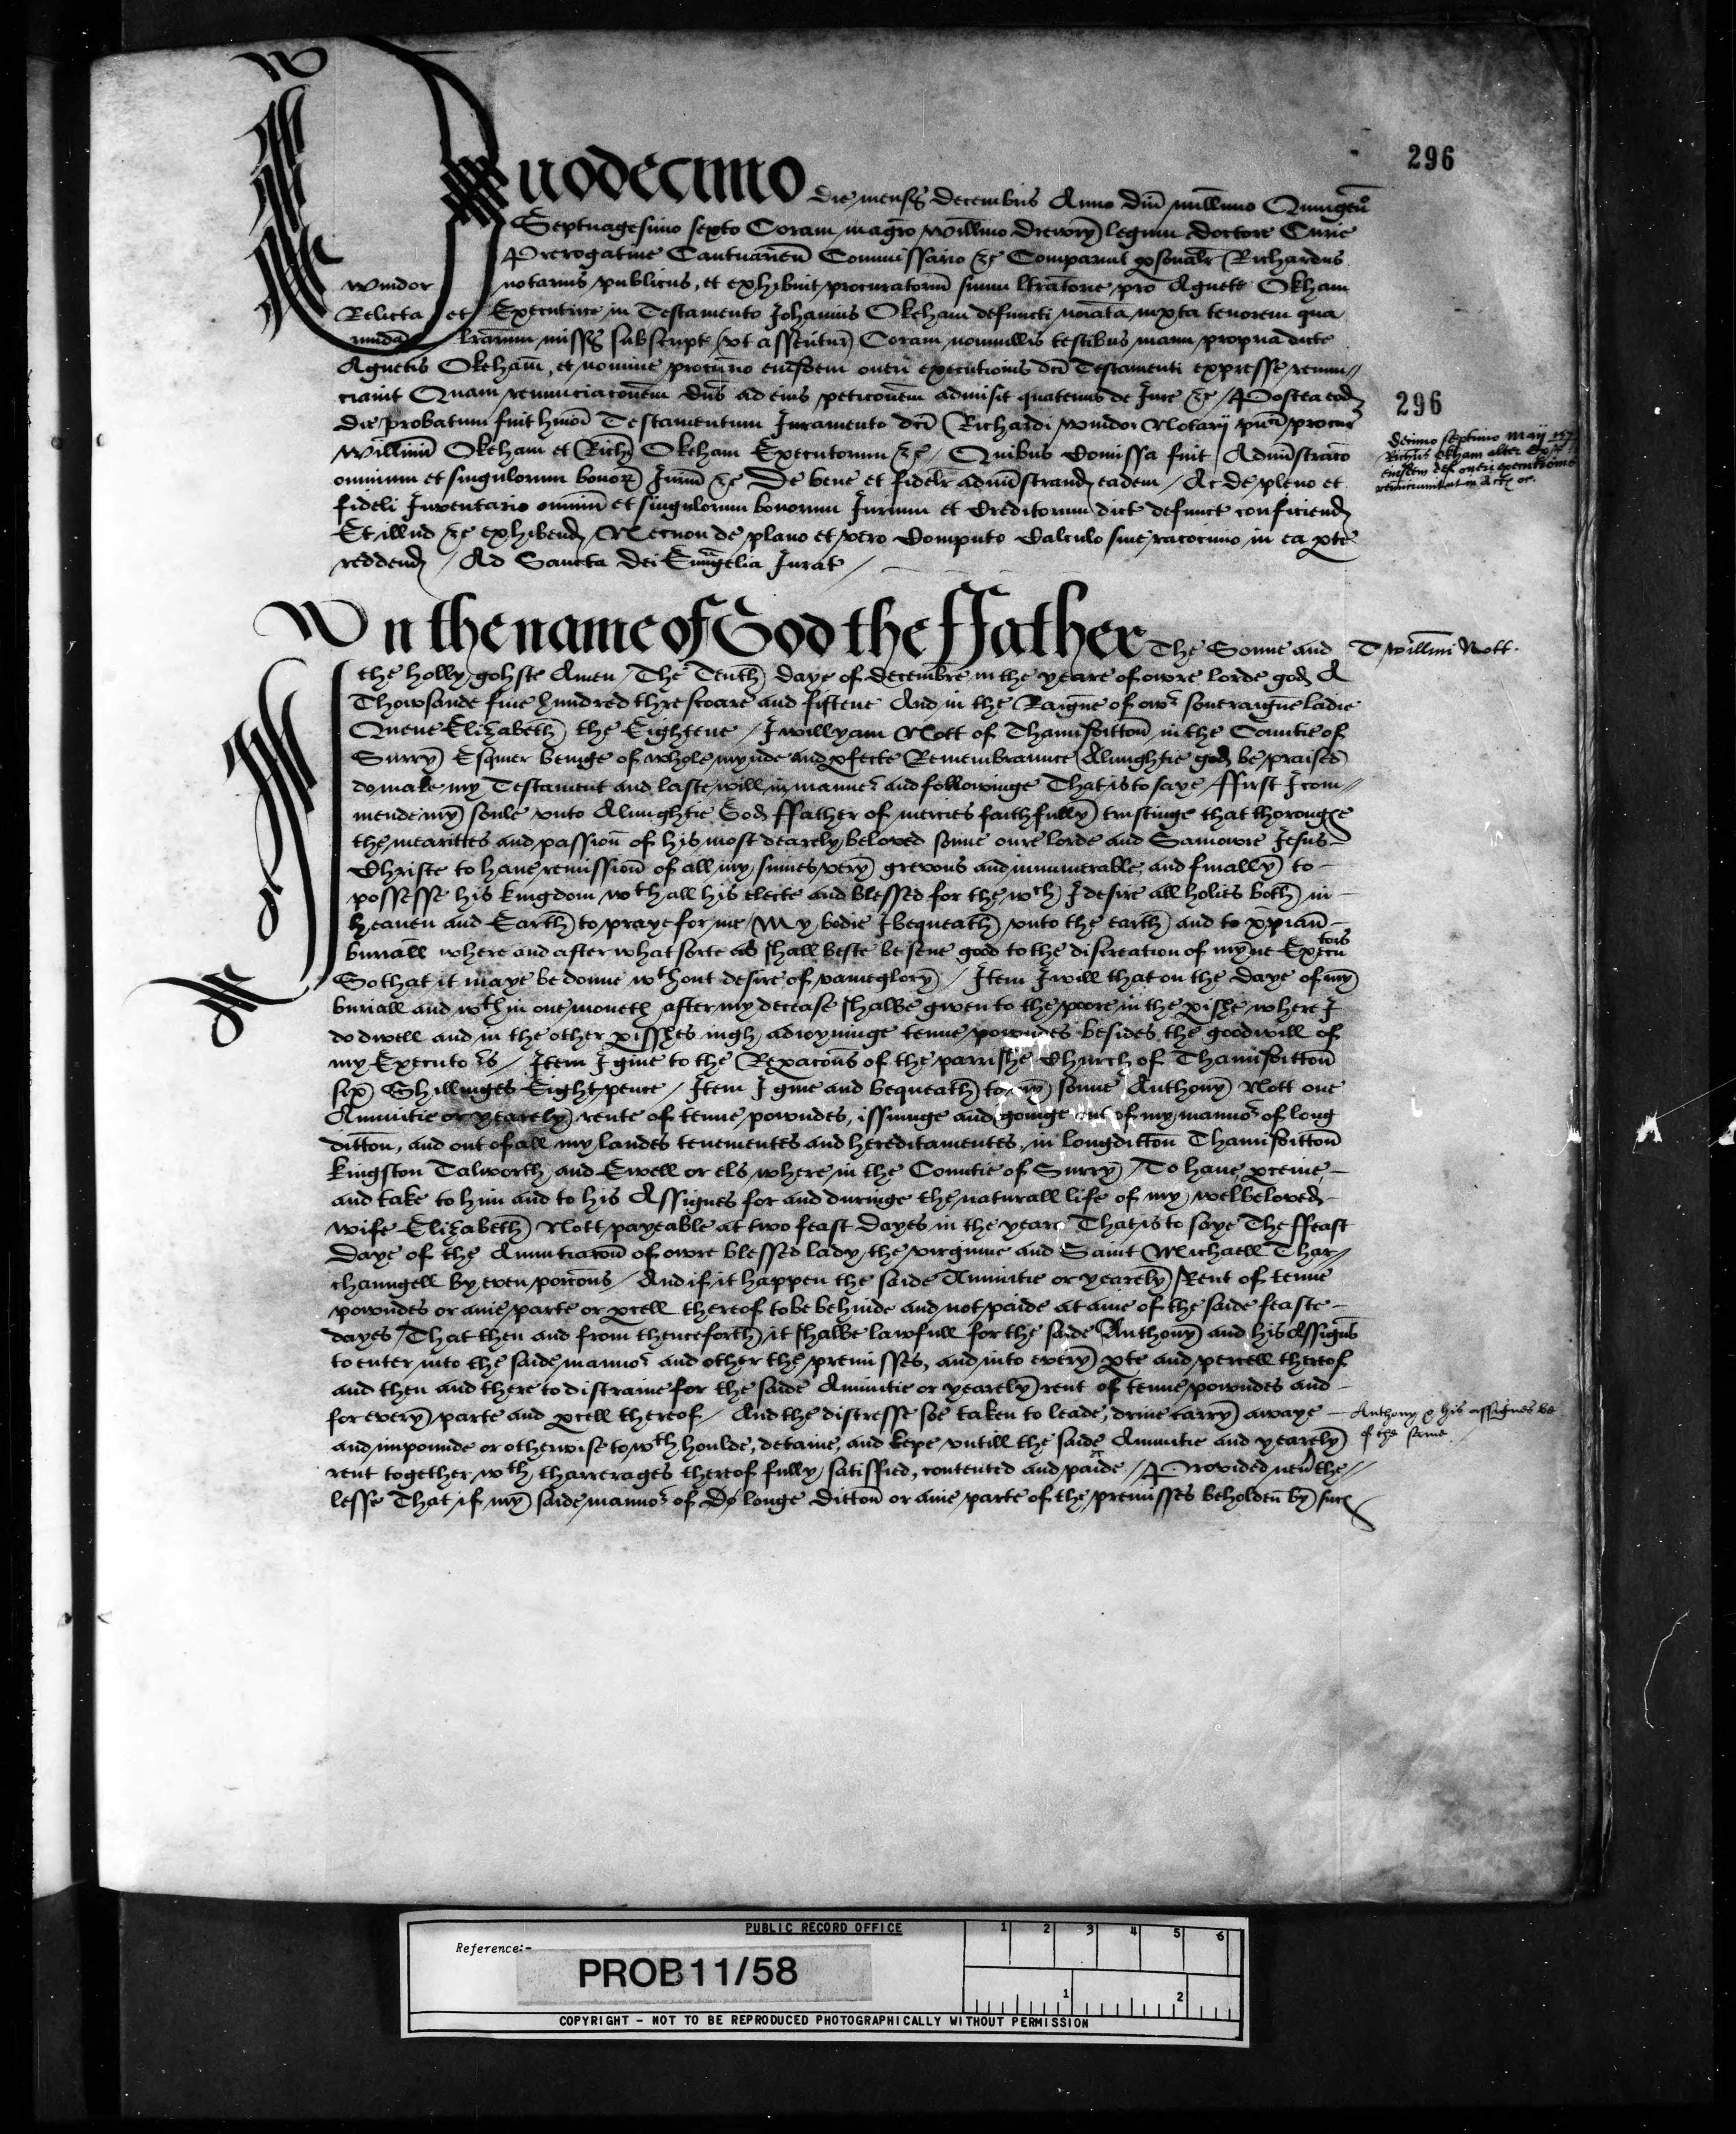 296
Duodecimo die mensis decembris Anno Dñi millimo Quingeñ
Septuagesimo sexto Coram magr̄o Willmo Drewry legum doctore Curie
Prerogative Cantuarieñ Commissario &c Comparuit psonalr Richardus
Windor notarius publicus, et exhibuit procuratoriũ suum lr̄atorie pro Agnete Okham
Relicta et Executrice in Testamento Johannis Okeham defuncti noiata, iuxta tenorem qua
rundã lrarum missis subscript (vt asseritur) Coram nonnullis testibus manu propria dicte
Agnetis Okeham, et nomine procurio eiusdem oneri executionis dci Testamenti expresse renun//
ciavit Quam renunciaconem dñs ad eius peticonem admisit quatenus de Jure &c / Postea eod
die probatum fuit hmõi Testamentum Juramento dci Richardi Windor Notarij pubci procur
Willimi Okeham et Richi Okeham Executorum &c / Quibus Comissa fuit Admistraco
omnium et singulorum bonoꝝ Jurium &c De bene et fidelr administrand eadem / Ac de pleno et
fideli Inventario omniũ et singulorum bonorum Jurium et Creditorum dict defunct conficiend
Et illud &c exhibend / Necnon de plano et vero Computo Calculo sive raciocinio in ea pte
reddend / Ad Sancta Dei Evangelia Jurat /
296
Decimo septimo Maij
Richus Okham alter Exec
eiusdem def oneri executionis
renunciavit ut in Actis &c.
In the name of God the ffather The Sonne and
T Willmi Nott.
the holly gohste Amen / The Tenth daye of decembre in the yeare of owre lorde god A
Thowsande five hundred threscoare and fiftene And in the Raigne of owr soveraigne ladie
Quene Elizabeth the Eightene / I willyam Nott of Thamisditton in the Countie of
Surry Esquier beinge of whole mynde and pfecte Remembraunce Almightie god be praised
do make my Testament and laste will in manner and followinge That is to saye / ffirst I com//
mende my soule unto Almightie God ffather of mercies faithfully trustinge that thoroughe
the mearittes and passion of his most dearely beloved sonne oure lorde and Saviowre Jesus
Christe to have remission of all my sinnes very grevous and innumerable, and finally to
possesse his kingdom wth all his electe and blessed for the wch I desire all holies both in
heaven and Earth to praye for me / My bodie I bequeath unto the earth and to xpian
buriall where and after what sorte as shall beste be sene good to the discreation of myne Executors
So that it maye be donne wthout desire of vaineglory / Item I will that on the daye of my
buriall and wthin one moneth after my decease shalbe given to the poore in the pishe where I
do dwell and in the other pisshes nigh adioyninge tenne powndes besides the goodwill of
my Executors / Item I give to the Repacons of the parrishe Church of Thamisditton
six Shillinges Eightpence / Item I give and bequeath to my sonne Anthony Nott one
Annuitie or yearely rente of tenne powndes, issuinge and goinge out of my mannor of long
ditton, and out of all my landes tenementes and hereditamentes, in longditton Thamisditton
kingston Talworth and Ewell or els where in the Countie of Surry / To have pceive
and take to him and to his Assignes for and duringe the naturall life of my welbeloved
wife Elizabeth Nott payeable at two feast dayes in the yeare That is to saye The ffeast
Daye of the Annunciacon of owre blessed lady the virginne and Saint Michaell Thar//
chaungell by even porcons / And if it happen the saide Annuitie or yearely Rent of tenne
powndes or anie parte or pcell thereof to be behinde and not paide at anie of the saide feaste
dayes / That then and from thenceforth it shalbe lawfull for the saide Anthony and his Assignes
to enter into the saide mannor and other the premisses, and into every pte and percell thereof
and then and there to distraine for the saide Annuitie or yearely rent of tenne powndes and
for every parte and pcell thereof / And the distresse soe taken to leade, drive carry awaye
and impounde or otherwise to wthhoulde, detaine, and kepe untill the saide Annuitie and yearely
Anthony & his assignes be
of the same
rent together wth tharrerages thereof fully satisfied, contented and paide // Provided nevthe//
lesse That if my saide mannor of longe Ditton or anie parte of the premisses beholden by such
PUBLIC RECORD OFFICE
1 2 3 4 5 6
Reference:-
PROB 11/58
1 2
COPYRIGHT - NOT TO BE REPRODUCED PHOTOGRAPHICALLY WITHOUT PERMISSION